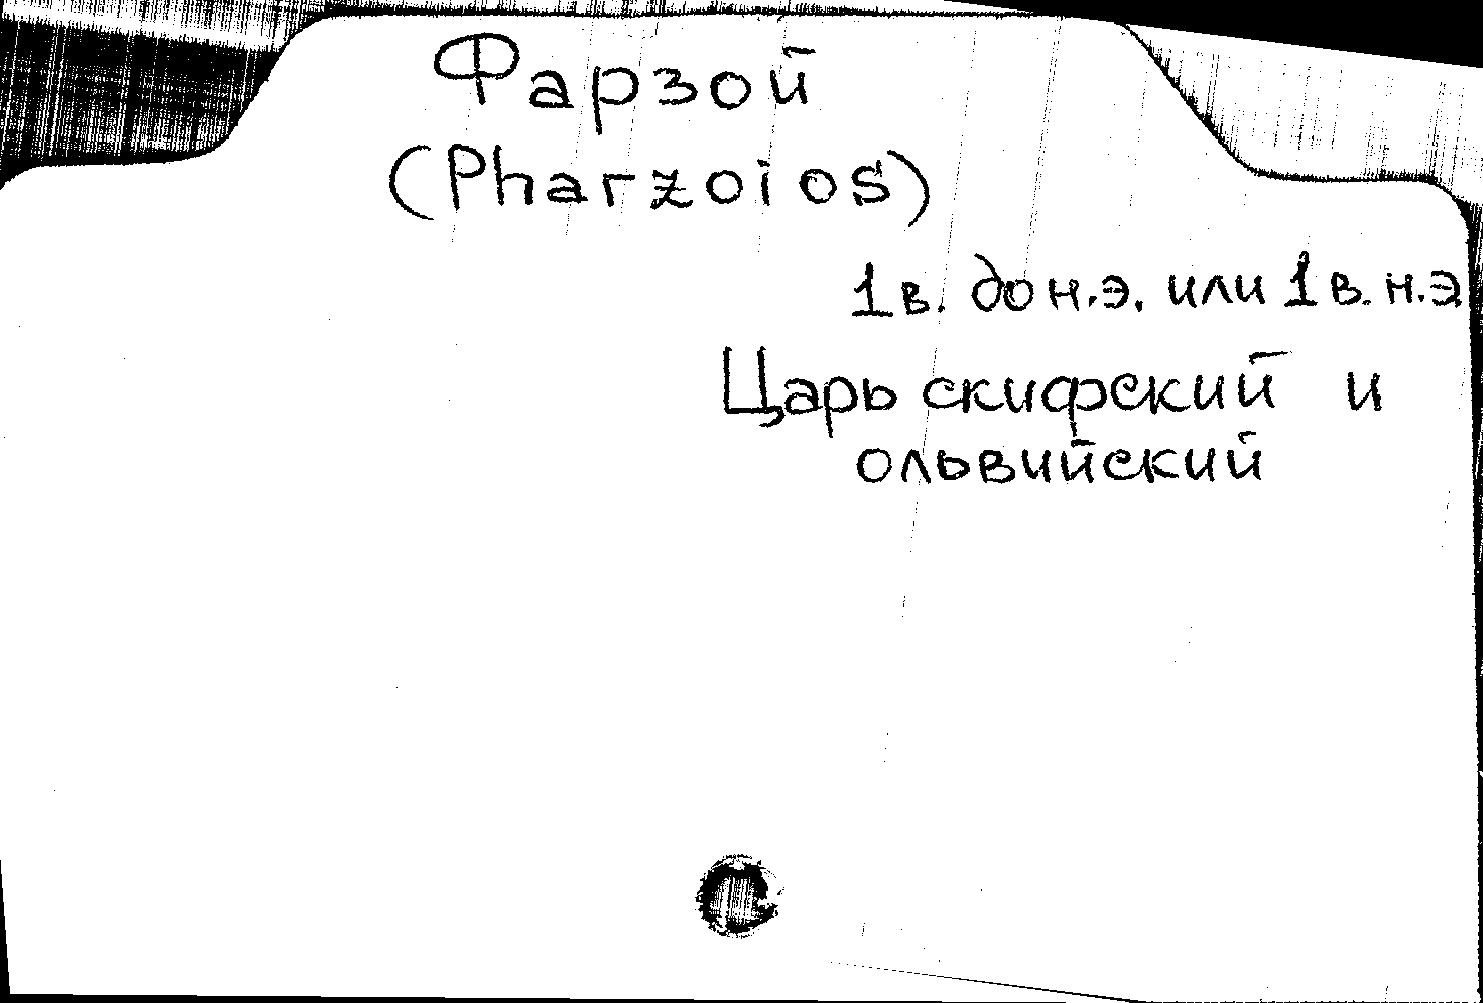 Фарзой
(Pharzoios)
1 в. до н.э. или 1 в. н.э.
Царь скифский и
ольвийский